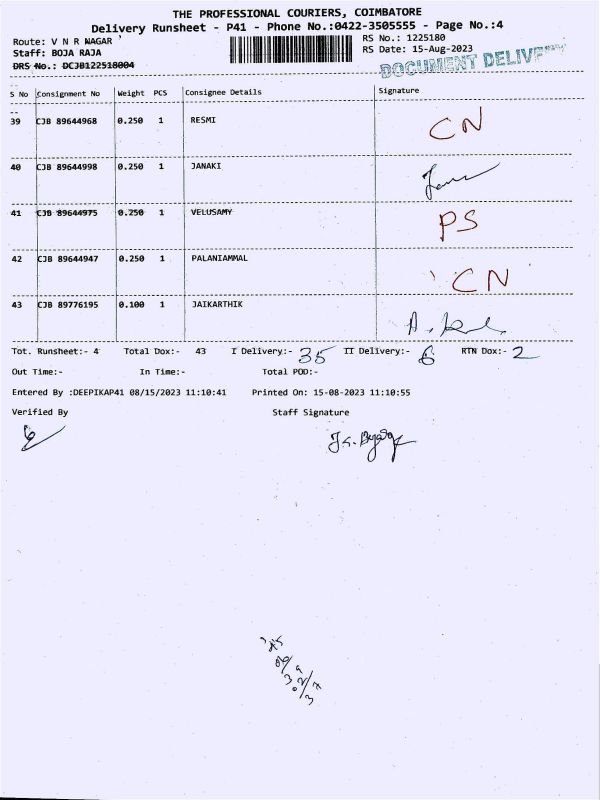 THE PROFESSIONAL COURIERS, COIMBATORE
Delivery Runsheet - P41 - Phone No.:0422-3505555 - Page No.:4
Route: V N R NAGAR RS No.: 1225180
Staff: BOJA RAJA RS Date: 15-Aug-2023
DRS No.: DCJB122518004 DOCUMENT DELIVERY
S No Consignment No Weight PCS Consignee Details Signature
39 CJB 89644968 0.250 1 RESMI CN
40 CJB 89644998 0.250 1 JANAKI
41 CJB 89644975 0.250 1 VELUSAMY PS
42 CJB 89644947 0.250 1 PALANIAMMAL CN
43 CJB 89776195 0.100 1 JAIKARTHIK
Tot. Runsheet:- 4 Total Dox:- 43 I Delivery:- 35 II Delivery:- 6 RTN Dox:- 2
Out Time:- In Time:- Total POD:-
Entered By :DEEPIKAP41 08/15/2023 11:10:41 Printed On: 15-08-2023 11:10:55
Verified By Staff Signature